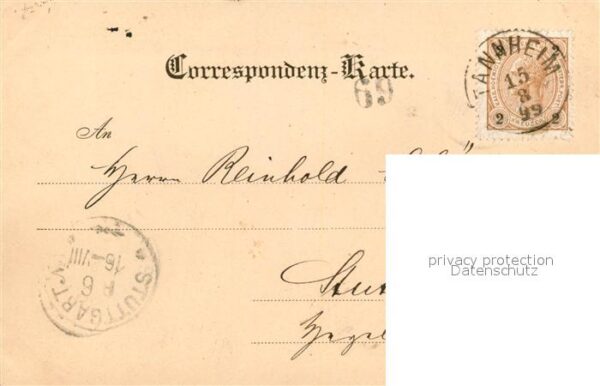 Correspondenz-Karte.
69
TANNHEIM
15
8
99
2 2
An
Herrn Reinhold
STUTTGART
16-VIII
6
privacy protection
Datenschutz